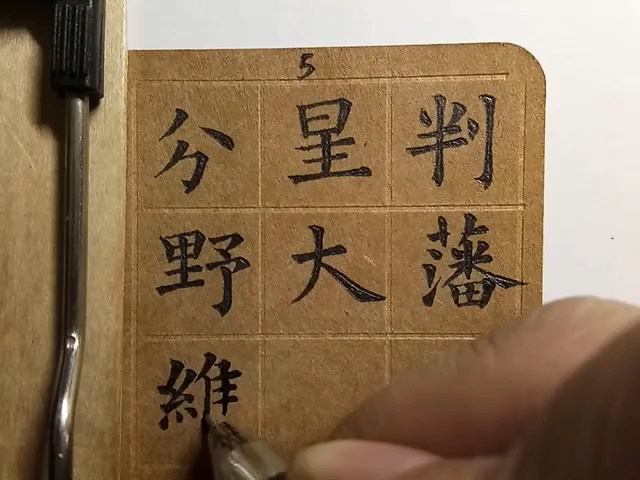 5
分星判
野大藩
維